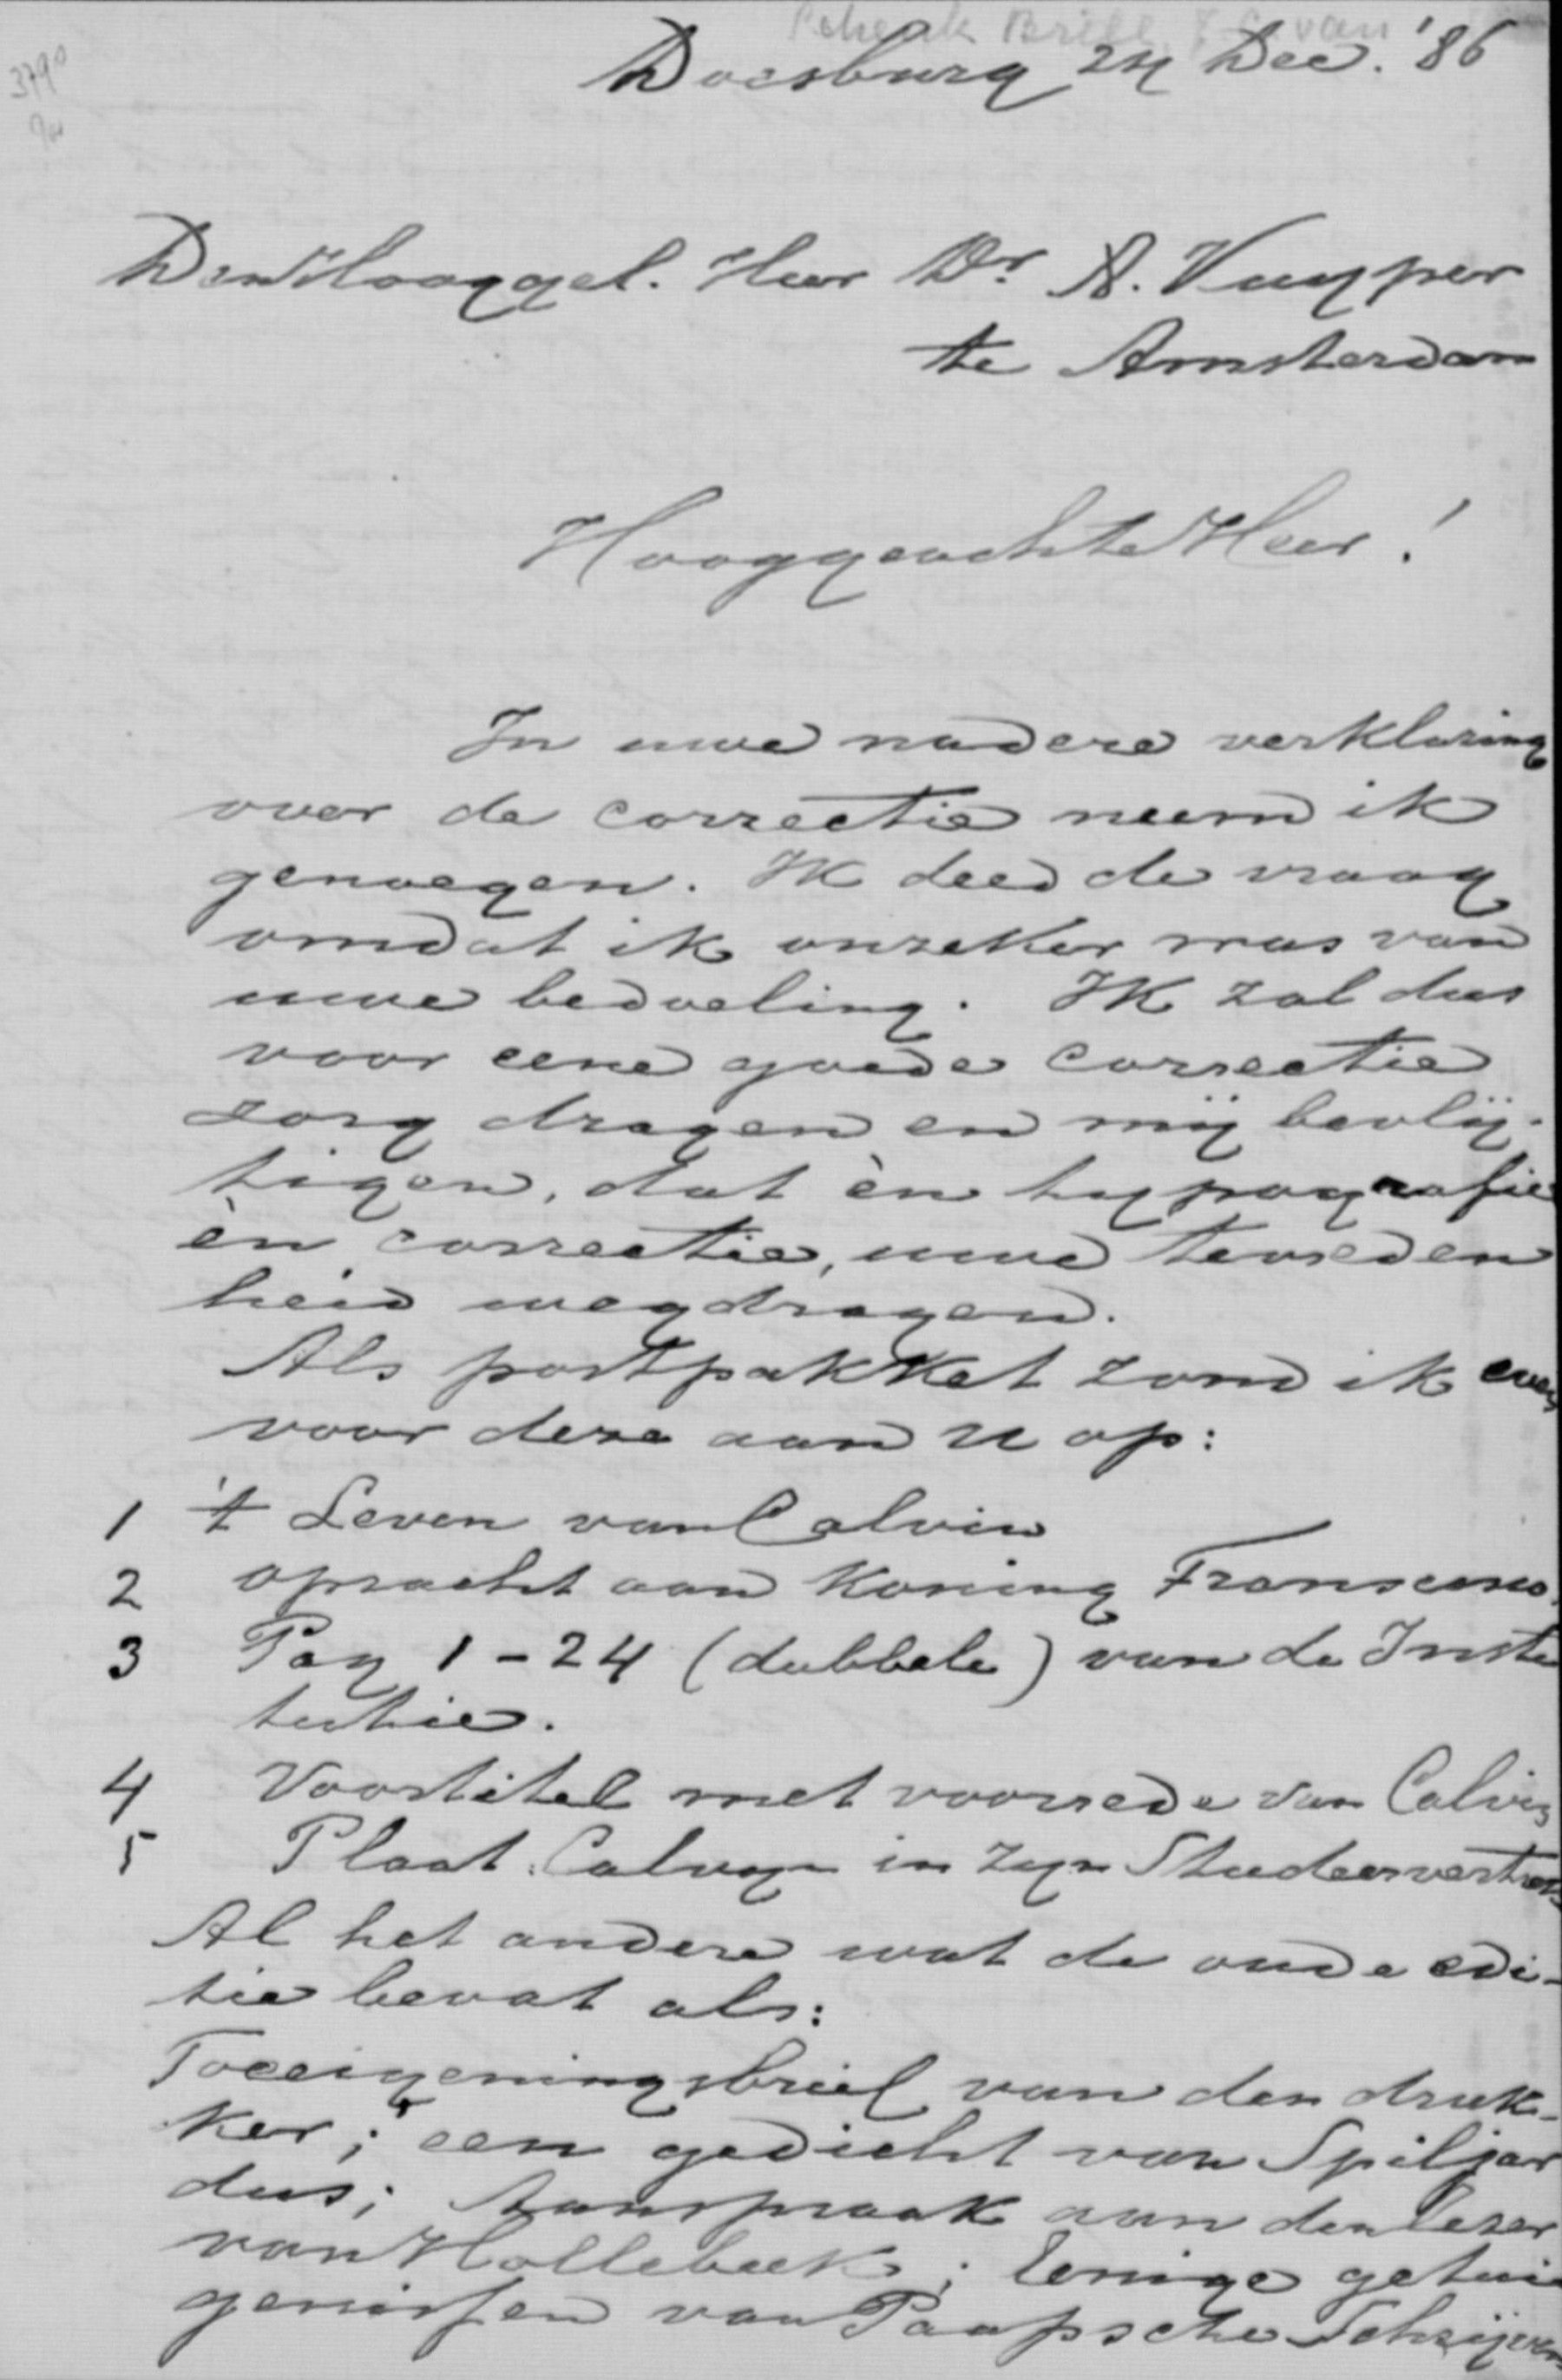 Schenk Brill, van
3790
Doesburg 24 Dec. '86
Den Hooggel. Heer Dr. A. Kuyper
te Amsterdam
Hooggeachte Heer!
In uwe nadere verklaring
over de correctie neem ik
genoegen. Ik deed de vraag
omdat ik onzeker was van
uwe bedoeling. Ik zal dus
voor eene goede correctie
zorg dragen en mij bevlij-
tigen, dat èn typografie
èn correctie, uwe tevreden
heid wegdragen.
Als postpakket zond ik even
voor deze aan U op:
1 't Leven van Calvin
2 opracht aan Koning Franscus
3 Pag 1-24 (dubbele) van de Insti
tutie.
4 Voortitel met voorrede van Calvin
5 Plaat Calvyn in zyn Studeervertrek
Al het andere wat de oude edi-
tie bevat als:
Toeeigeningsbrief van den druk-
ker; een gedicht van Spiljar
dus; Aanspraak aan den lezer
van Hollebeek; Eenige getui
genissen van Paapsche Schrijvers